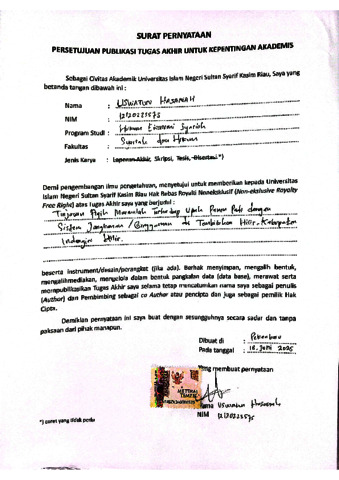 SURAT PERNYATAAN
PERSETUJUAN PUBLIKASI TUGAS AKHIR UNTUK KEPENTINGAN AKADEMIS
Sebagai Civitas Akademik Universitas Islam Negeri Sultan Syarif Kasim Riau, Saya yang
bertanda tangan dibawah ini :
Nama : USWATUN HASANAH
NIM : 12120221575
Program Studi : Hukum Ekonomi Syariah
Fakultas : Syariah dan Hukum
Jenis Karya : Laporan Akhir, Skripsi, Tesis, Disertasi *)
Demi pengembangan ilmu pengetahuan, menyetujui untuk memberikan kepada Universitas
Islam Negeri Sultan Syarif Kasim Riau Hak Bebas Royalti Noneksklusif (Non-eksklusive Royalty
Free Right) atas Tugas Akhir saya yang berjudul :
Tinjauan Fiqih Muamalah Terhadap Upah Panen Padi dengan
Sistem / di Tembilahan Hilir, Kabupaten
Indragiri Hilir.
beserta instrument/desain/perangkat (jika ada). Berhak menyimpan, mengalih bentuk,
mengalihmediakan, mengelola dalam bentuk pangkalan data (data base), merawat serta
mempublikasikan Tugas Akhir saya selama tetap mencatumkan nama saya sebagai penulis
(Author) dan Pembimbing sebagai co Author atau pencipta dan juga sebagai pemilik Hak
Cipta.
Demikian pernyataan ini saya buat dengan sesungguhnya secara sadar dan tanpa
paksaan dari pihak manapun.
Dibuat di : Pekanbaru
Pada tanggal : 18 Juni 2025
Yang membuat pernyataan
METERAI
TEMPEL
Nama Uswatun Hasanah
NIM 12120221575
*) coret yang tidak perlu